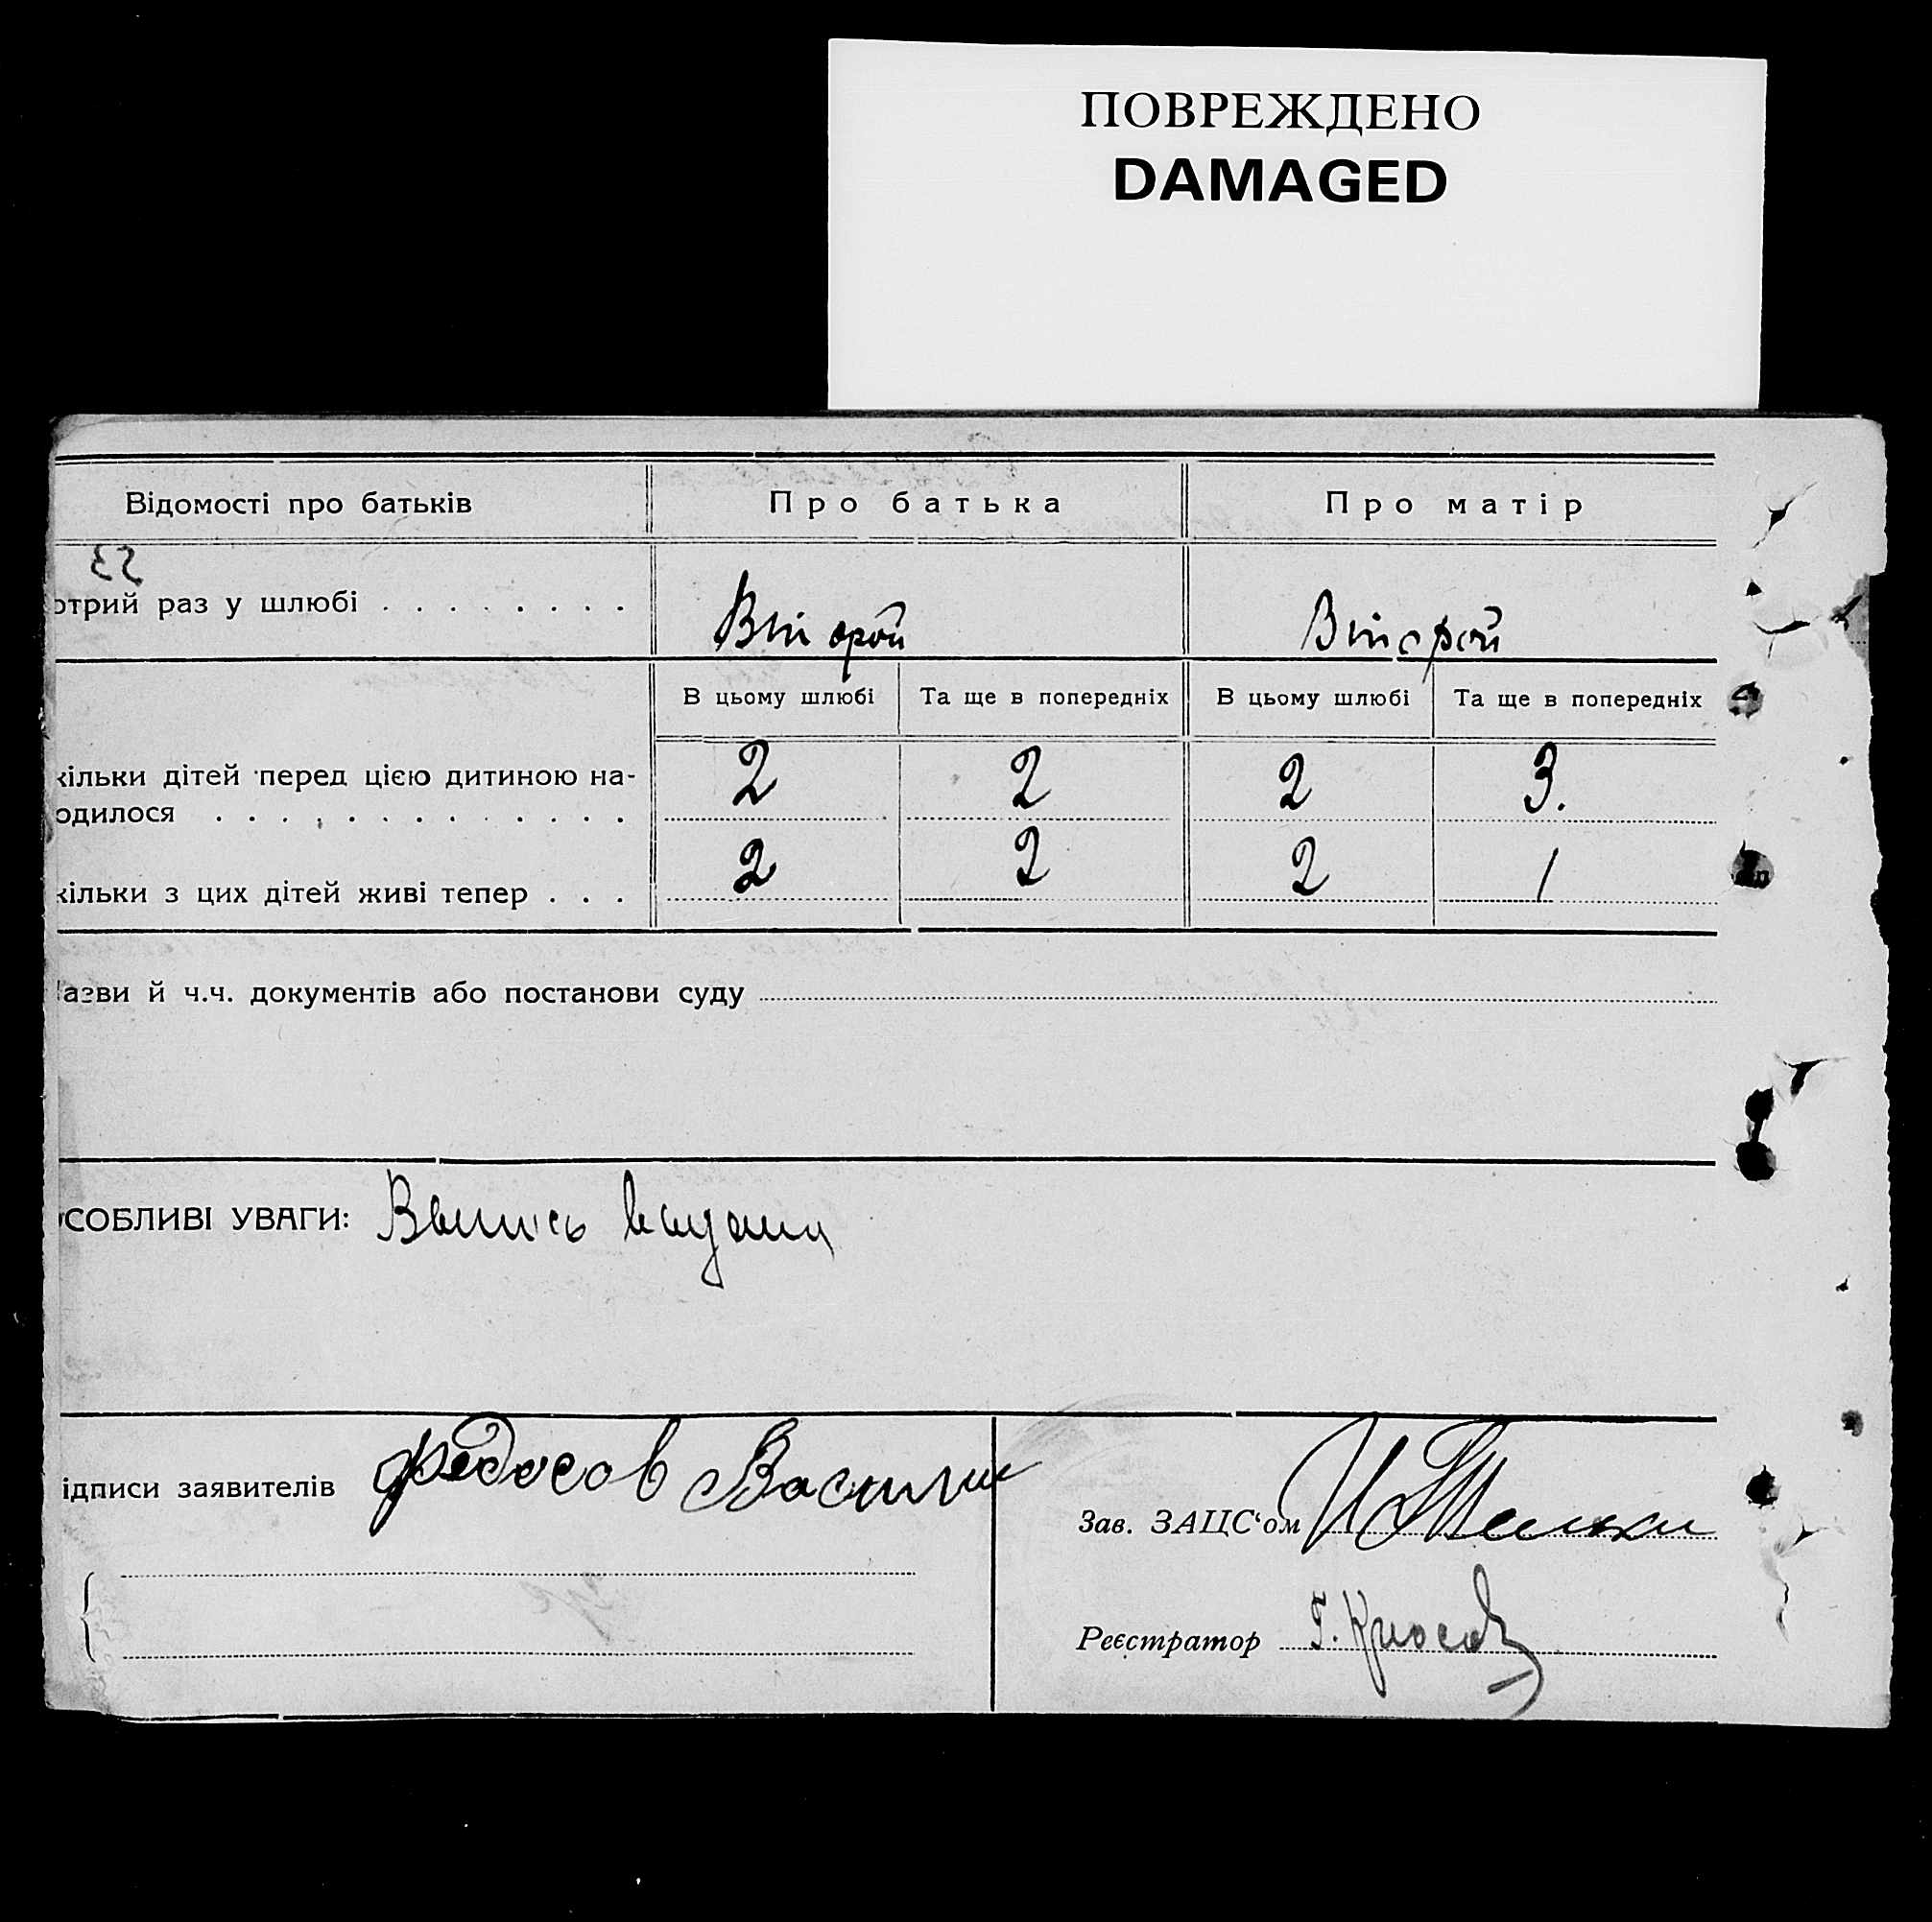 ПОВРЕЖДЕНО
DAMAGED
Відомості про батьків Про батька Про матір
отрий раз у шлюбі . . . . . . . . Второй Второй
В цьому шлюбі Та ще в попередніх В цьому шлюбі Та ще в попередніх
кільки дітей перед цією дитиною на-
одилося . . . . . . . . . . . . . 2 2 2 3.
кільки з цих дітей живі тепер . . . 2 2 2 1
азви й ч.ч. документів або постанови суду
СОБЛИВІ УВАГИ: Выпись выдана
ідписи заявителів Федосов Василий
Зав. ЗАЦС‘ом
Реєстратор Г.